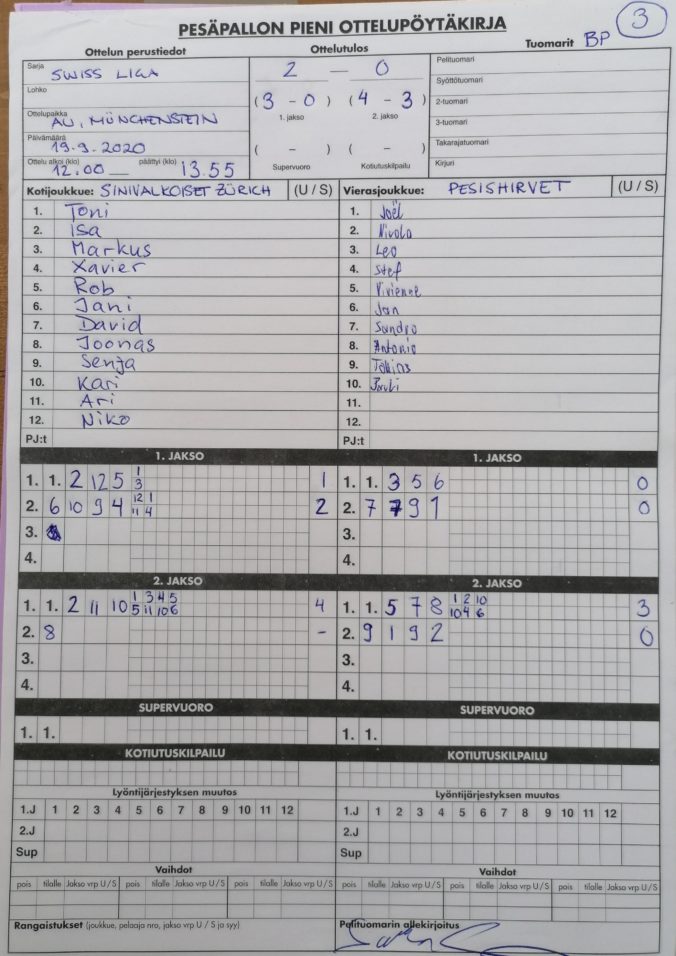 3
PESÄPALLON PIENI OTTELUPÖYTÄKIRJA
Ottelun perustiedot Ottelutulos Tuomarit BP
Sarja SWISS LIGA 2 — 0 Pelituomari
Lohko Syöttötuomari
(3 - 0) (4 - 3) 2-tuomari
Ottelupaikka AU, MÜNCHENSTEIN 1. jakso 2. jakso 3-tuomari
Päivämäärä 19.9.2020 ( - ) ( - ) Takarajatuomari
Ottelu alkoi (klo) 12.00 päättyi (klo) 13.55 Supervuoro Kotiutuskilpailu Kirjuri
Kotijoukkue: SINIVALKOISET ZÜRICH (U / S) Vierasjoukkue: PESISHIRVET (U / S)
1. Toni 1. Joël
2. Isa 2. Nivola
3. Markus 3. Leo
4. Xavier 4. Stef
5. Rob 5. Vivienne
6. Jani 6. Jan
7. David 7. Sandro
8. Joonas 8. Antonio
9. Senja 9.
10. Kari 10.
11. Ari 11.
12. Niko 12.
PJ:t PJ:t
1. JAKSO 1. JAKSO
1. 1. 2 12 5 1 3 1 1. 1. 3 5 6 0
2. 6 10 9 4 12 1 11 4 2 2. 7 7 9 1 0
3. 3.
4. 4.
2. JAKSO 2. JAKSO
1. 1. 2 11 10 1 3 4 5 5 11 10 6 4 1. 1. 5 7 8 1 2 10 10 4 6 3
2. 8 - 2. 9 1 9 2 0
3. 3.
4. 4.
SUPERVUORO SUPERVUORO
1. 1. 1. 1.
KOTIUTUSKILPAILU KOTIUTUSKILPAILU
Lyöntijärjestyksen muutos Lyöntijärjestyksen muutos
1.J 1 2 3 4 5 6 7 8 9 10 11 12 1.J 1 2 3 4 5 6 7 8 9 10 11 12
2.J 2.J
Sup Sup
Vaihdot Vaihdot
pois tilalle Jakso vrp U / S pois tilalle Jakso vrp U / S pois tilalle pois tilalle Jakso vrp U / S pois tilalle Jakso vrp U / S pois tilalle
Rangaistukset (joukkue, pelaaja nro, jakso vrp U / S ja syy) Pelituomarin allekirjoitus